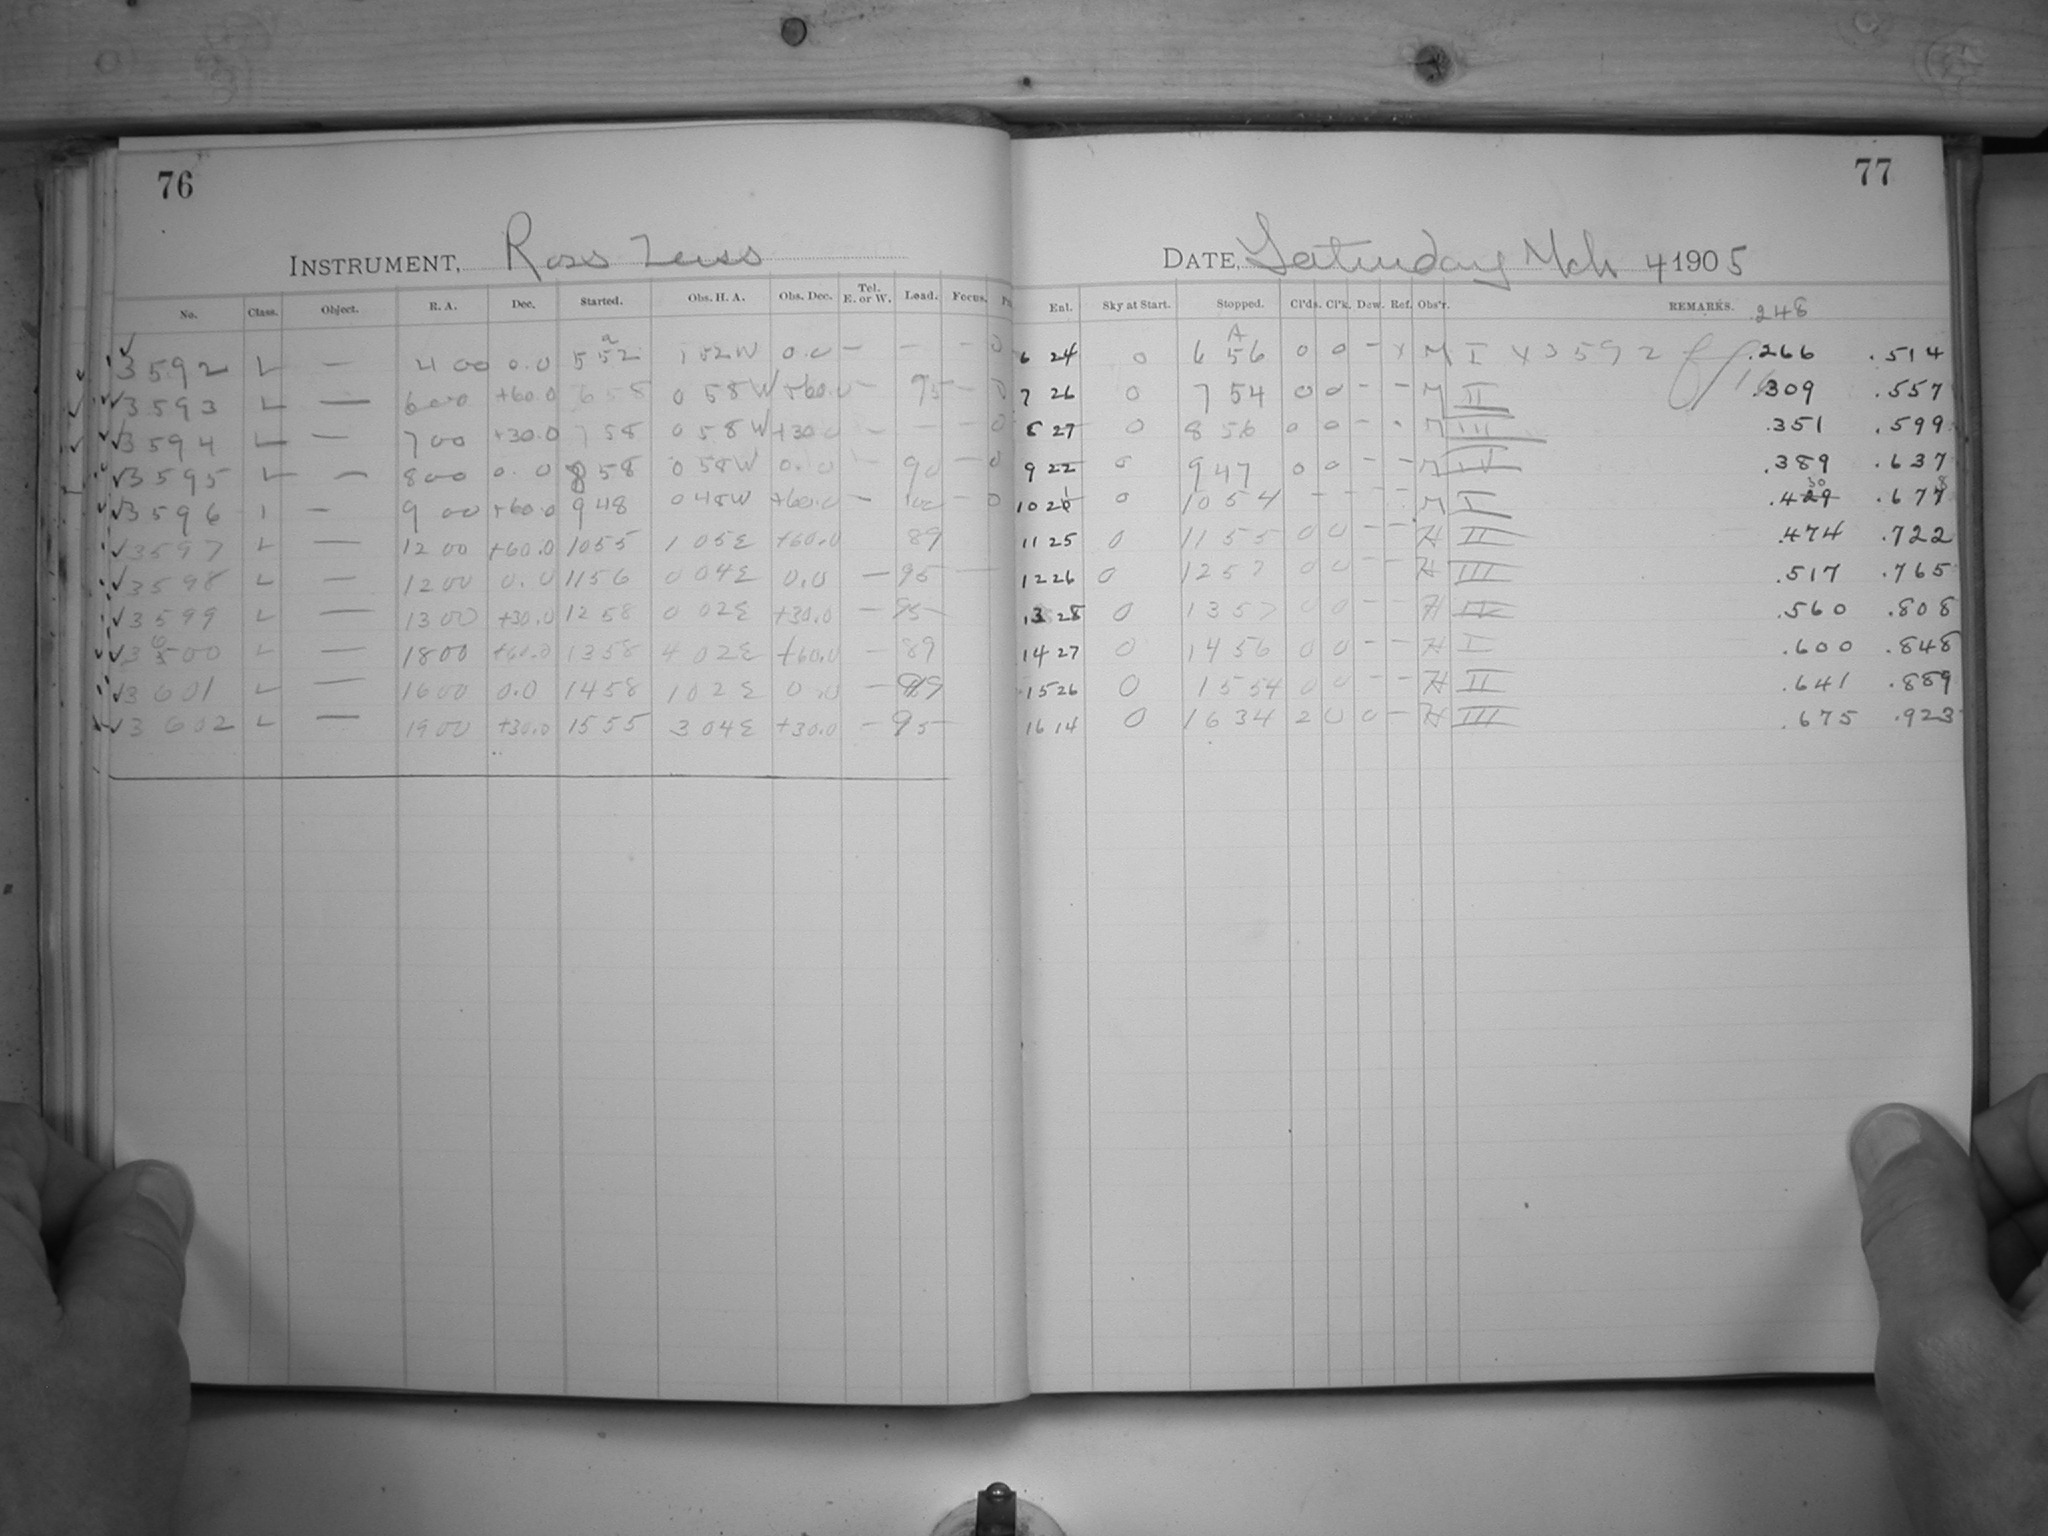 76
INSTRUMENT, Ross Zeiss
No. Class. Object. R. A. Dec. Started. Obs. H. A. Obs. Dec. Tel. E. or W. Load. Focus.
3592 L — 4 00 0.0 5 52 1 52W 0.0 — — — 0
3593 L — 6 00 +60.0 6 58 0 58W +60.0 — 95 — 0
3594 L — 7 00 +30.0 7 58 0 58W +30.0 — — — 0
3595 L — 8 00 0.0 8 58 0 58W 0.0 — 90 — 0
3596 — 9 00 +60.0 9 48 0 48W +60.0 — — 0
3597 L — 12 00 +60.0 10 55 1 05E +60.0 89
3598 L — 12 00 0.0 11 56 0 04E 0.0 — 95 —
3599 L — 13 00 +30.0 12 58 0 02E +30.0 — 95
3600 L — 18 00 +60.0 13 58 4 02E +60.0 — 89
3601 L — 16 00 0.0 14 58 1 02E 0.0 — 89
3602 L — 19 00 +30.0 15 55 3 04E +30.0 — 95
77
DATE, Saturday Mch 4 1905
Enl. Sky at Start. Stopped. Cl'ds. Cl'k. Dew. Ref. Obs'r. REMARKS. .248
6 24 0 A 6 56 0 0 — x M I x 3592 f/16 .266 .514
7 26 0 7 54 0 0 — — M II .309 .557
8 27 0 8 56 0 0 — — M III .351 .599
9 22 0 9 47 0 0 — — M IV .389 .637
10 21 0 10 54 — — M I .430 .678
11 25 0 11 55 0 0 — — H II .474 .722
12 26 0 12 57 0 0 — — H III .517 .765
13 28 0 13 57 0 0 — — H IV .560 .808
14 27 0 14 56 0 0 — — H I .600 .848
15 26 0 15 54 0 0 — — H II .641 .889
16 14 0 16 34 2 0 0 — H III .675 .923